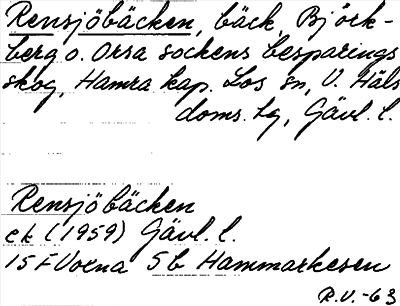 Rensjöbäcken, bäck, Björk-
berg o. Orsa sockens besparings
skog, Hamra kap. Los sn, V. Häls
doms. lg, Gävl. l.
Rensjöbäcken
ek (1959) Gävl. l.
15 F Voxna 5b Hammarkesen
R.V.-63